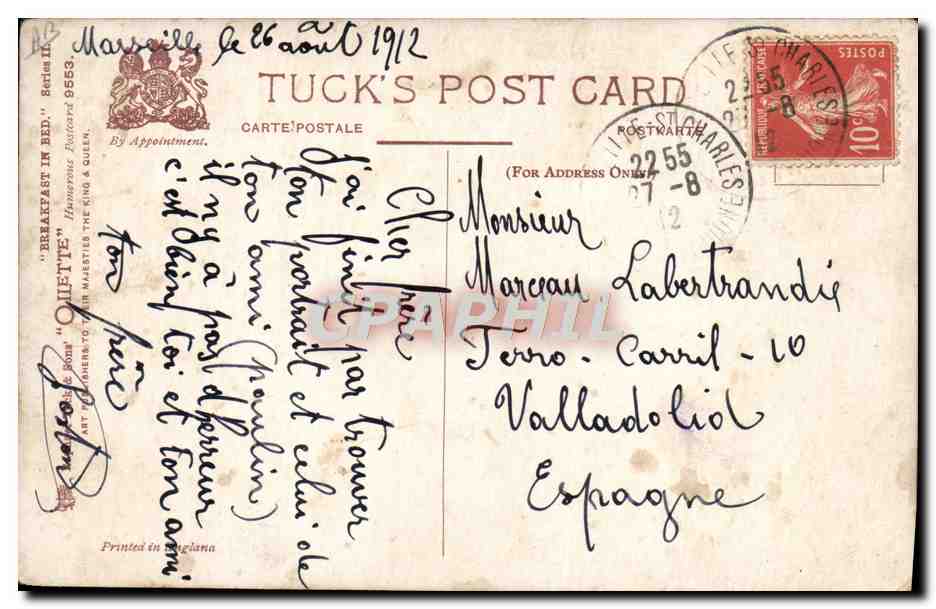 AB
Marseille le 26 août 1912
TUCK'S POST CARD
CARTE POSTALE
POSTKARTE
By Appointment.
(FOR ADDRESS ONLY)
"BREAKFAST IN BED." Series II.
"OILETTE" Humorous Postcard 9553.
& Sons'
ART PUBLISHERS TO THEIR MAJESTIES THE KING & QUEEN.
Printed in England
Cher frère
j'ai finit par trouver
ton portrait et celui de
ton ami (paulin)
il n'y à pas d'herreur
c'est bien toi et ton ami
ton frère
Monsieur
Marceau Labertrandie
Ferro-Carril-10
Valladolid
Espagne
ST CHARLES
22 55
27 -8
12
ST CHARLES
22 55
-8
REPUBLIQUE FRANÇAISE
POSTES
10c
CPAPHIL